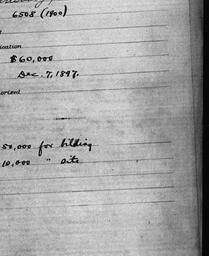 6508 (1900)
ication
$60,000
Dec. 7, 1897.
orized
50,000 for bilding
10,000 " site